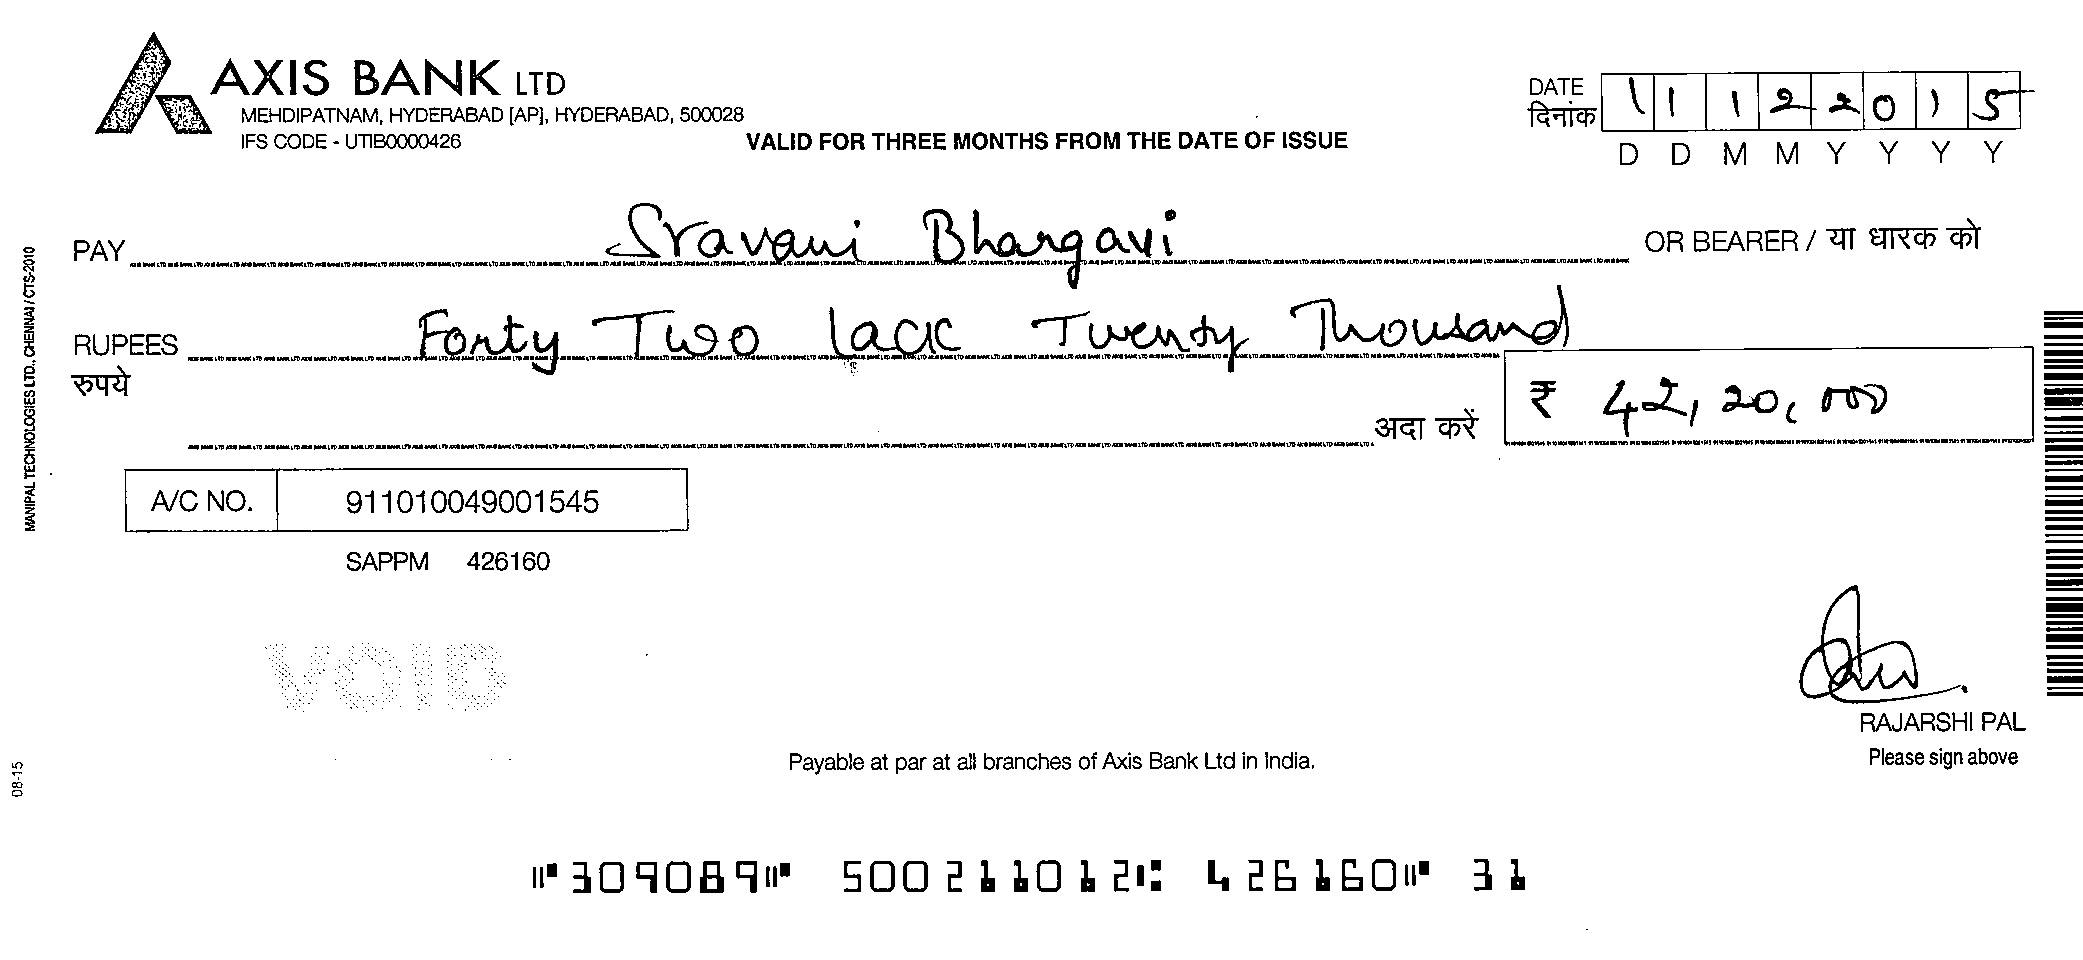 AXIS BANK LTD
MEHDIPATNAM, HYDERABAD [AP], HYDERABAD, 500028
IFS CODE - UTIB0000426
VALID FOR THREE MONTHS FROM THE DATE OF ISSUE
DATE
दिनांक
1 1 1 2 2 0 1 5
D D M M Y Y Y Y
PAY Sravani Bhargavi OR BEARER / या धारक को
RUPEES Forty Two lack Twenty Thousand
रुपये
अदा करें ₹ 42,20,000
A/C NO. 911010049001545
SAPPM 426160
VOID
RAJARSHI PAL
Please sign above
Payable at par at all branches of Axis Bank Ltd in India.
⑈309089⑈ 500211012⑆ 426160⑈ 31
MANIPAL TECHNOLOGIES LTD., CHENNAI / CTS-2010
08-15